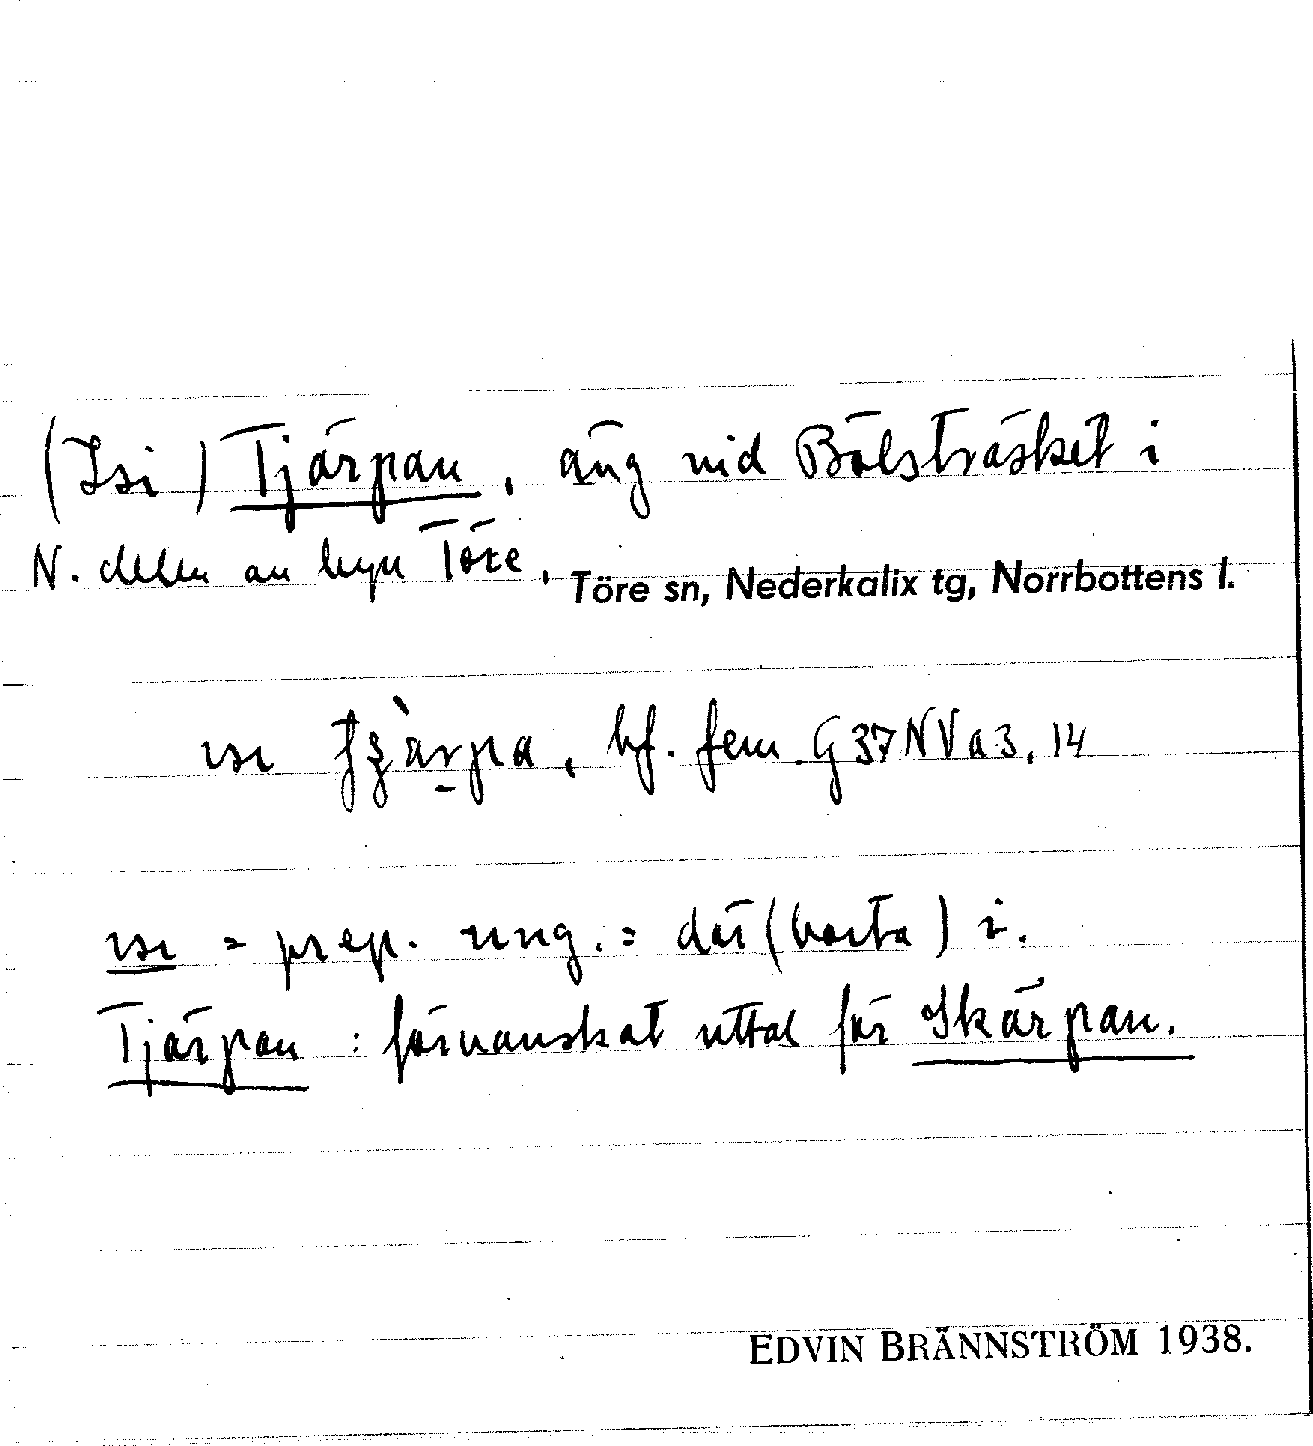 (Isi) Tjärpan, äng vid Bölsträsket i
N. delen av byn Töre, Töre sn, Nederkalix tg, Norrbottens l.
ɩsɩ ʃʒàrpa, bf. fem. G37NVa3,14
ɩsɩ = prep. ung. = där (borta) i.
Tjärpan : försvenskat uttal för Skärpan.
EDVIN BRÄNNSTRÖM 1938.